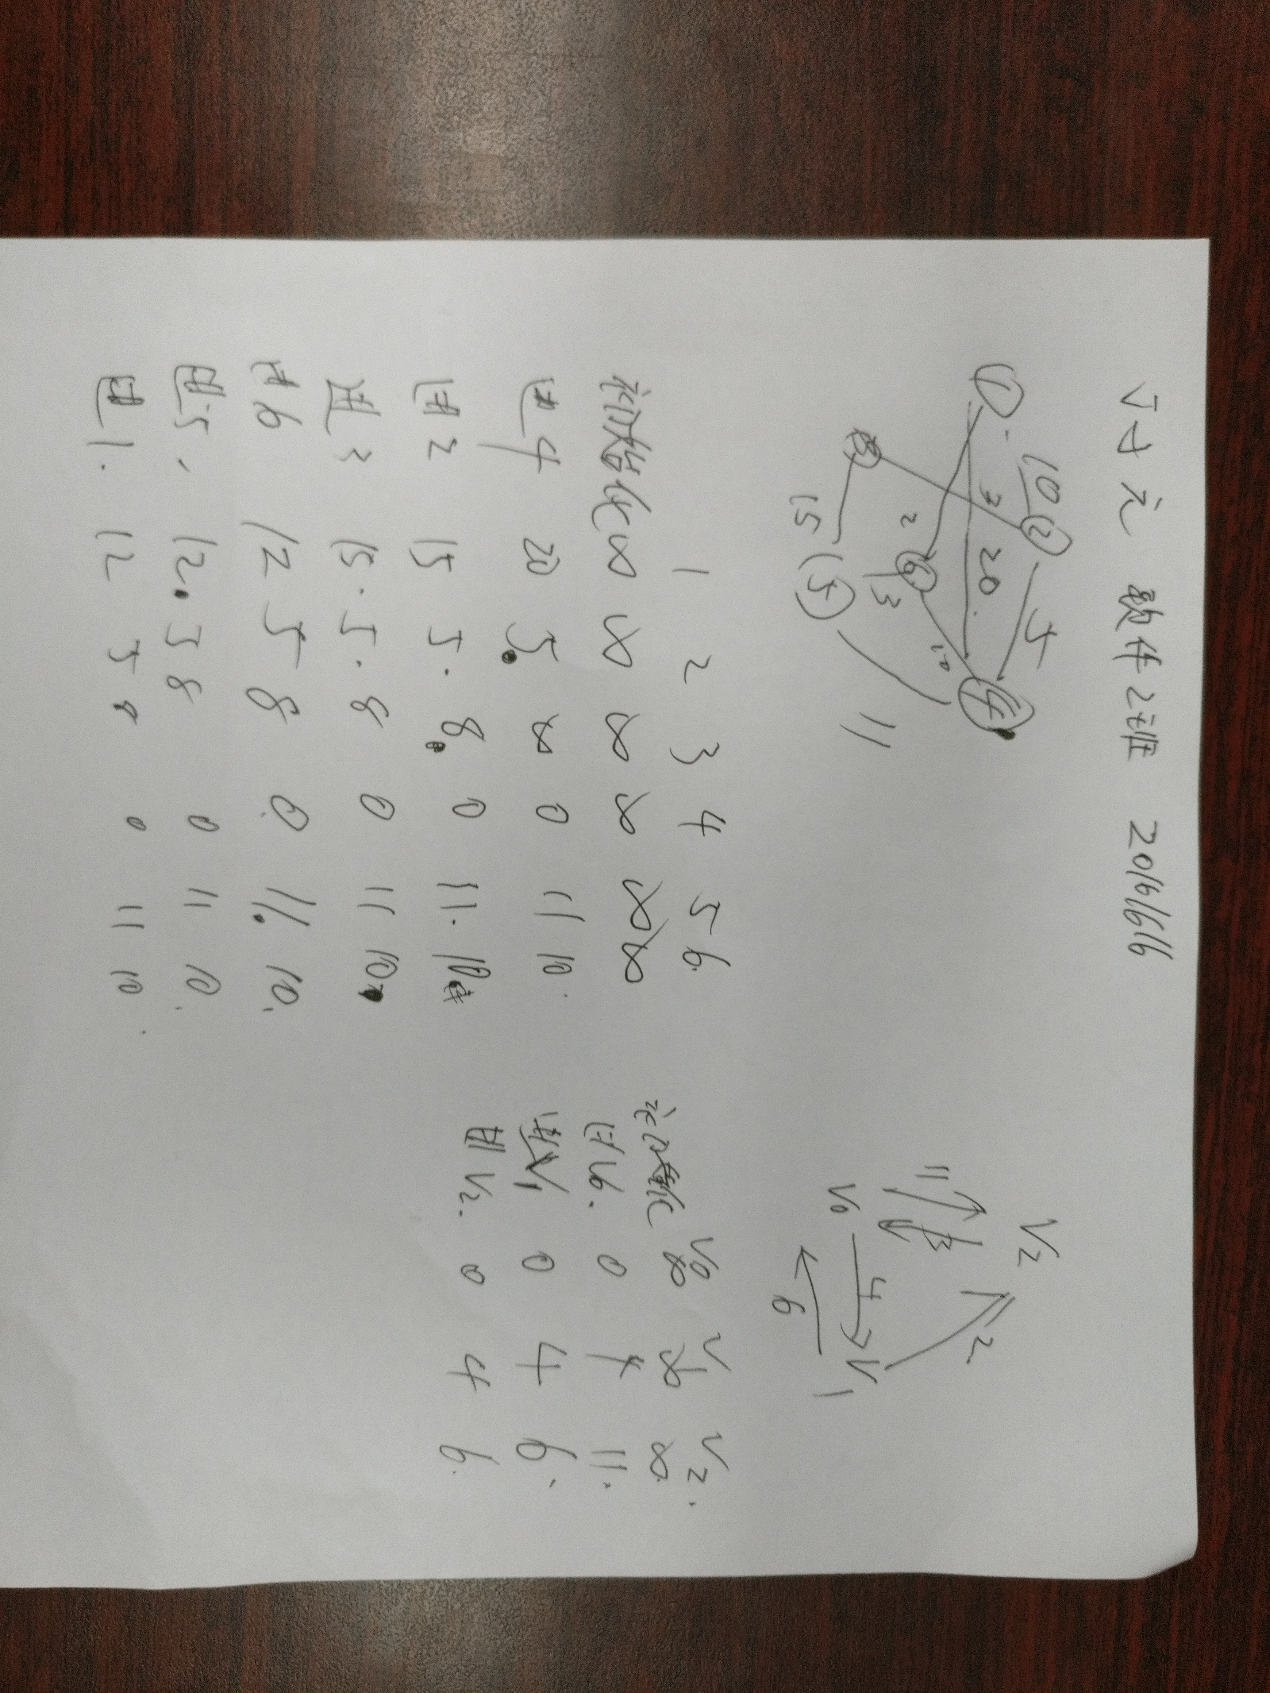 软件2班 20161616
① 10 ② 5 ④
3 20
③ 2 ⑥ 10
15 ⑤ 3 11
1 2 3 4 5 6
初始化 ∞ ∞ ∞ ∞ ∞ ∞
进4 20 5 ∞ 0 11 10
进2 15 5 8 0 11
进3 15 5 8 0 11 10
进6 12 5 8 0 11 10
进5 12 5 8 0 11 10
进1 12 5 8 0 11 10
V2
11 3 2
V0 4 V1
6
V0 V1 V2
初始化 ∞ ∞ ∞
进V0 0 4 11
进V1 0 4 6
进V2 0 4 6